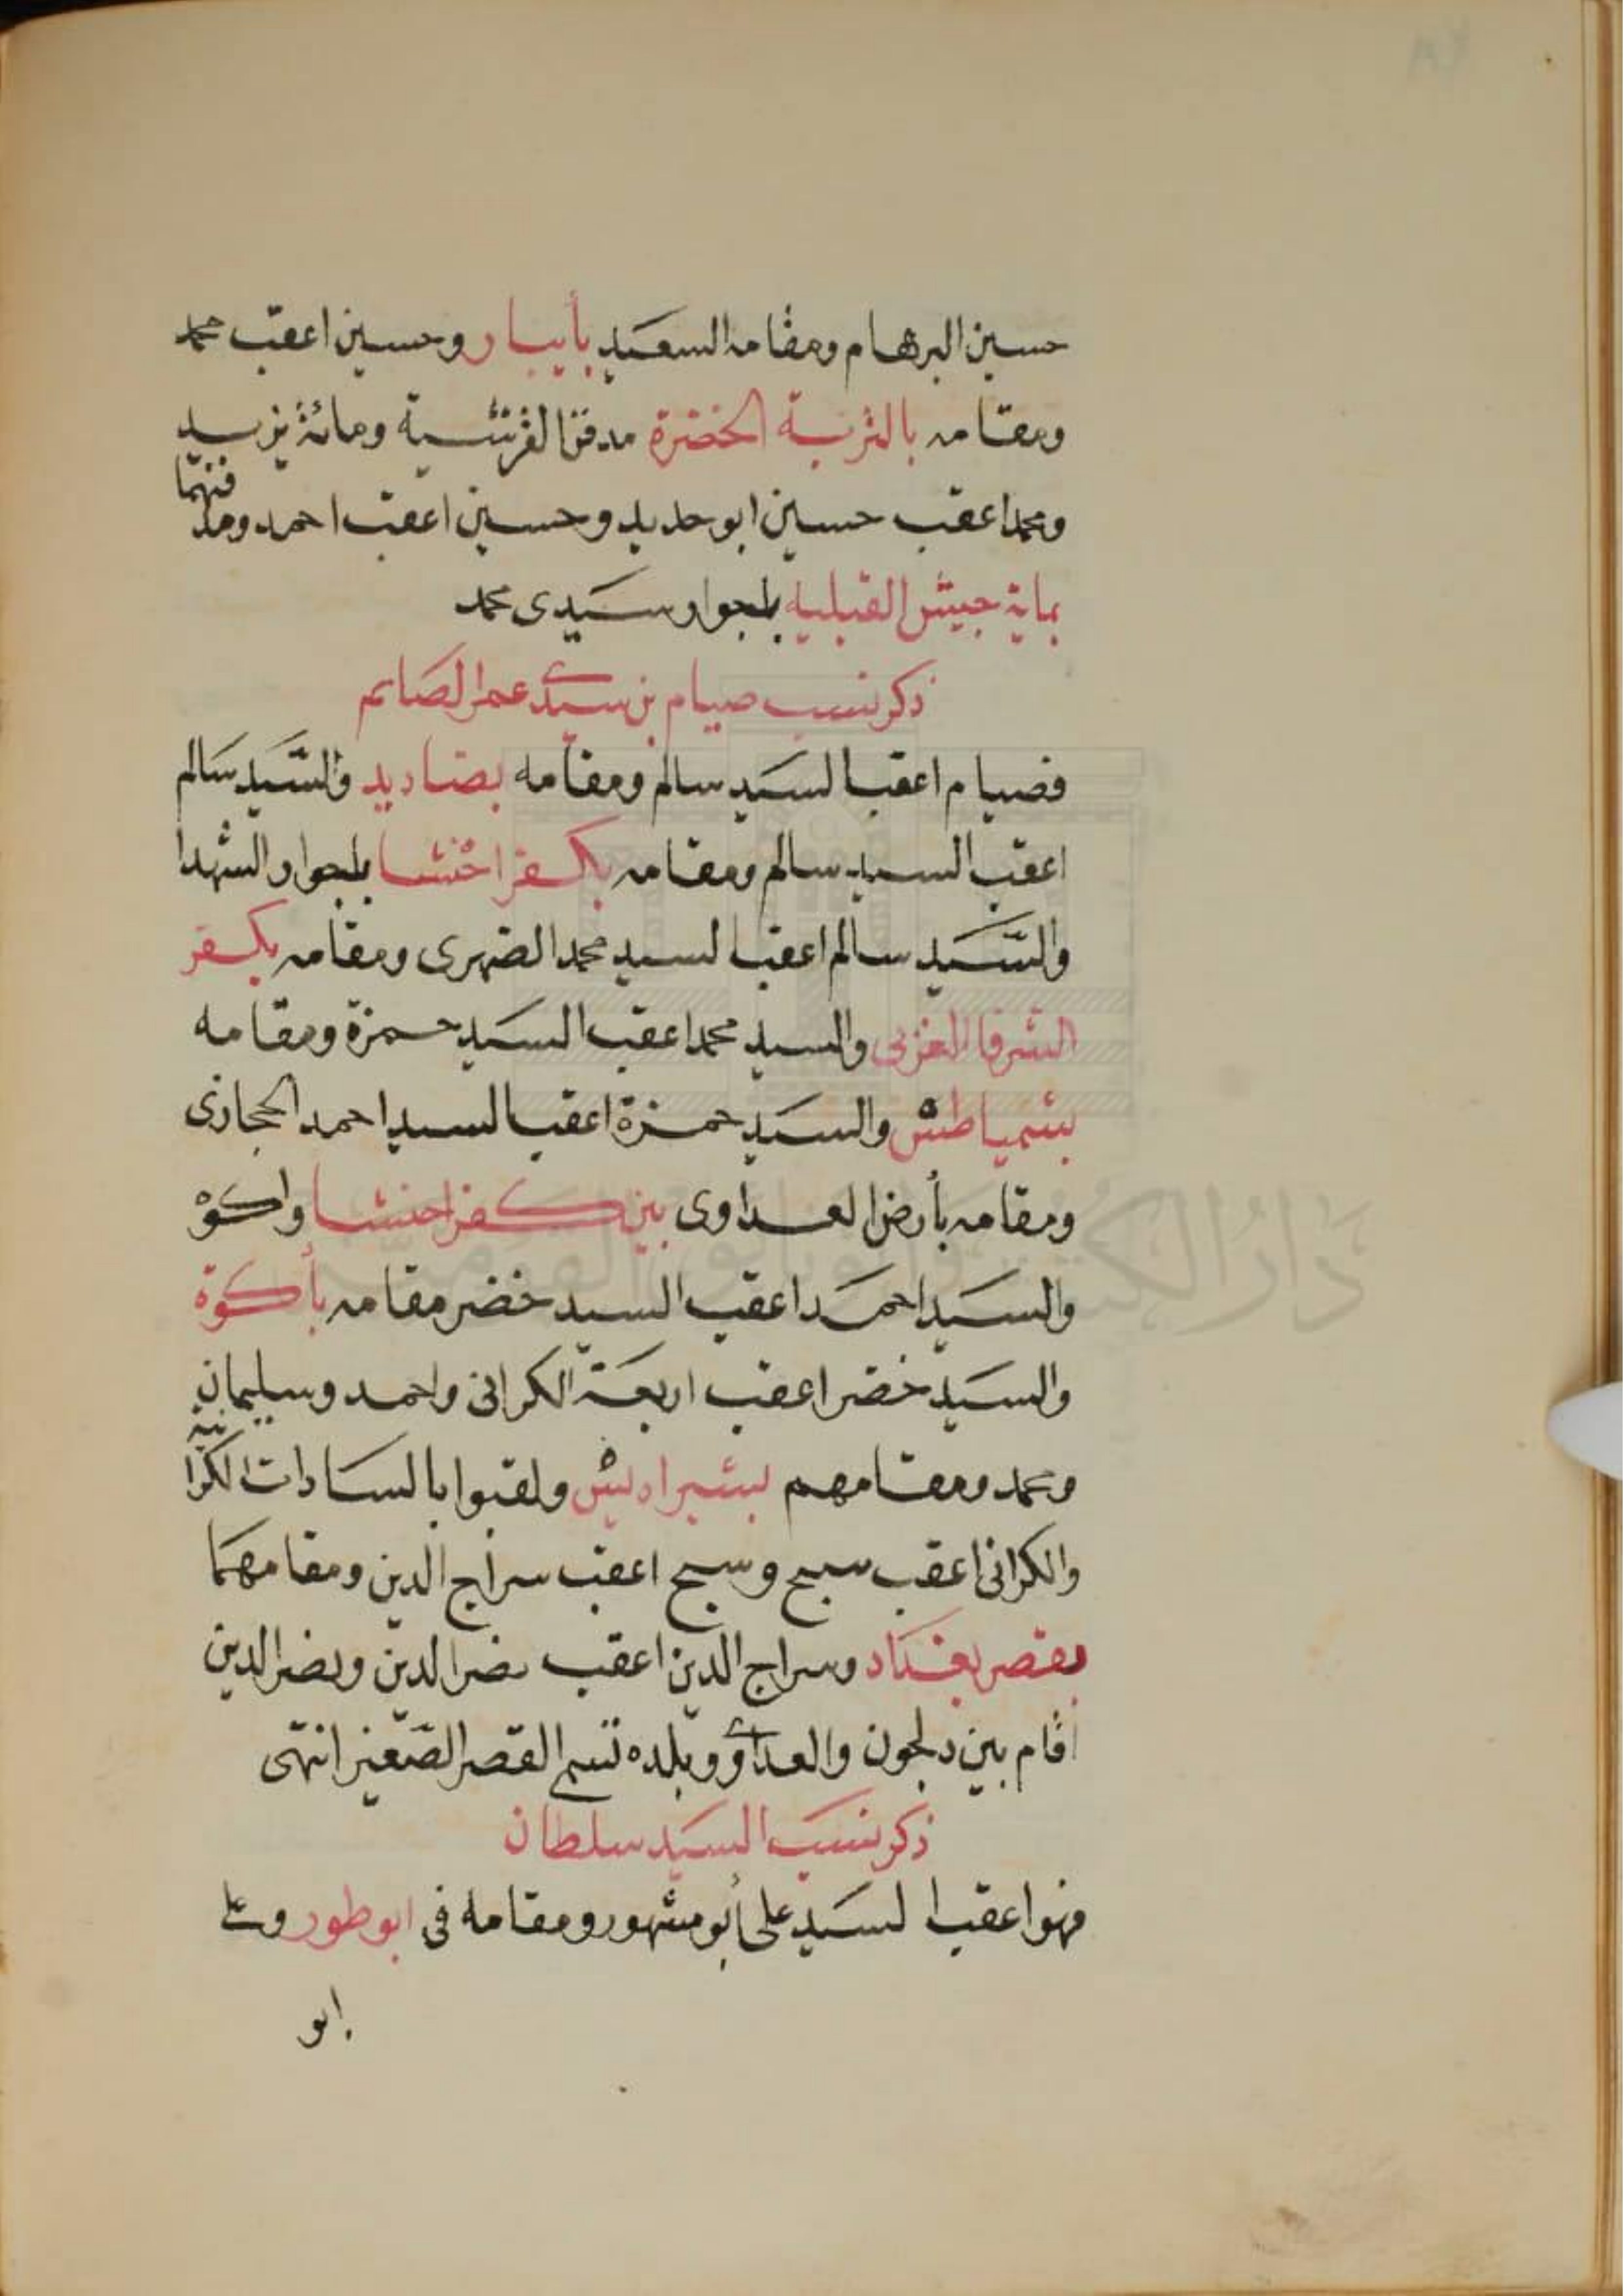 حسين البرهام ومقامه السعيد بأبيار وحسين اعقب محمد
ومقامه بالتربة الخضرة مدفن القرنشية ومائة يزيد
ومحمد اعقب حسين ابو حديد وحسين اعقب احمد ومحمد فنهما
بماية جيش القبلية بلجوار سيدى محمد
ذكر نسب صيام بن سيدى عمر الصايم
فصيام اعقب السيد سالم ومقامه بصناديد والسيد سالم
اعقب السيد سالم ومقامه بكفر اخنشا بلجوار الشهدا
والسيد سالم اعقب السيد محمد الضهرى ومقامه بكفر
الشرفا الغربى والسيد محمد اعقب السيد حمزة ومقامه
بشمياطش والسيد حمزة اعقب السيد احمد الحجازى
ومقامه بأرض العداوى بين كفر اخنشا واكوه
والسيد احمد اعقب السيد خضر مقامه بأكوة
والسيد خضر اعقب اربعة الكرانى واحمد وسليمان
ومحمد ومقامهم بشبراريس ولقبوا بالسادات الكرانية
والكرانى اعقب سبح وسبح اعقب سراج الدين ومقامهما
بقصر بغداد وسراج الدين اعقب نصر الدين ونصر الدين
اقام بين دلجون والعداوى وبلده تسم القصر الصغير انتهى
ذكر نسب السيد سلطان
فهو اعقب السيد على أبو مشهور ومقامه فى ابو طور وعلى
ابو
دار الكتب والوثائق القومية